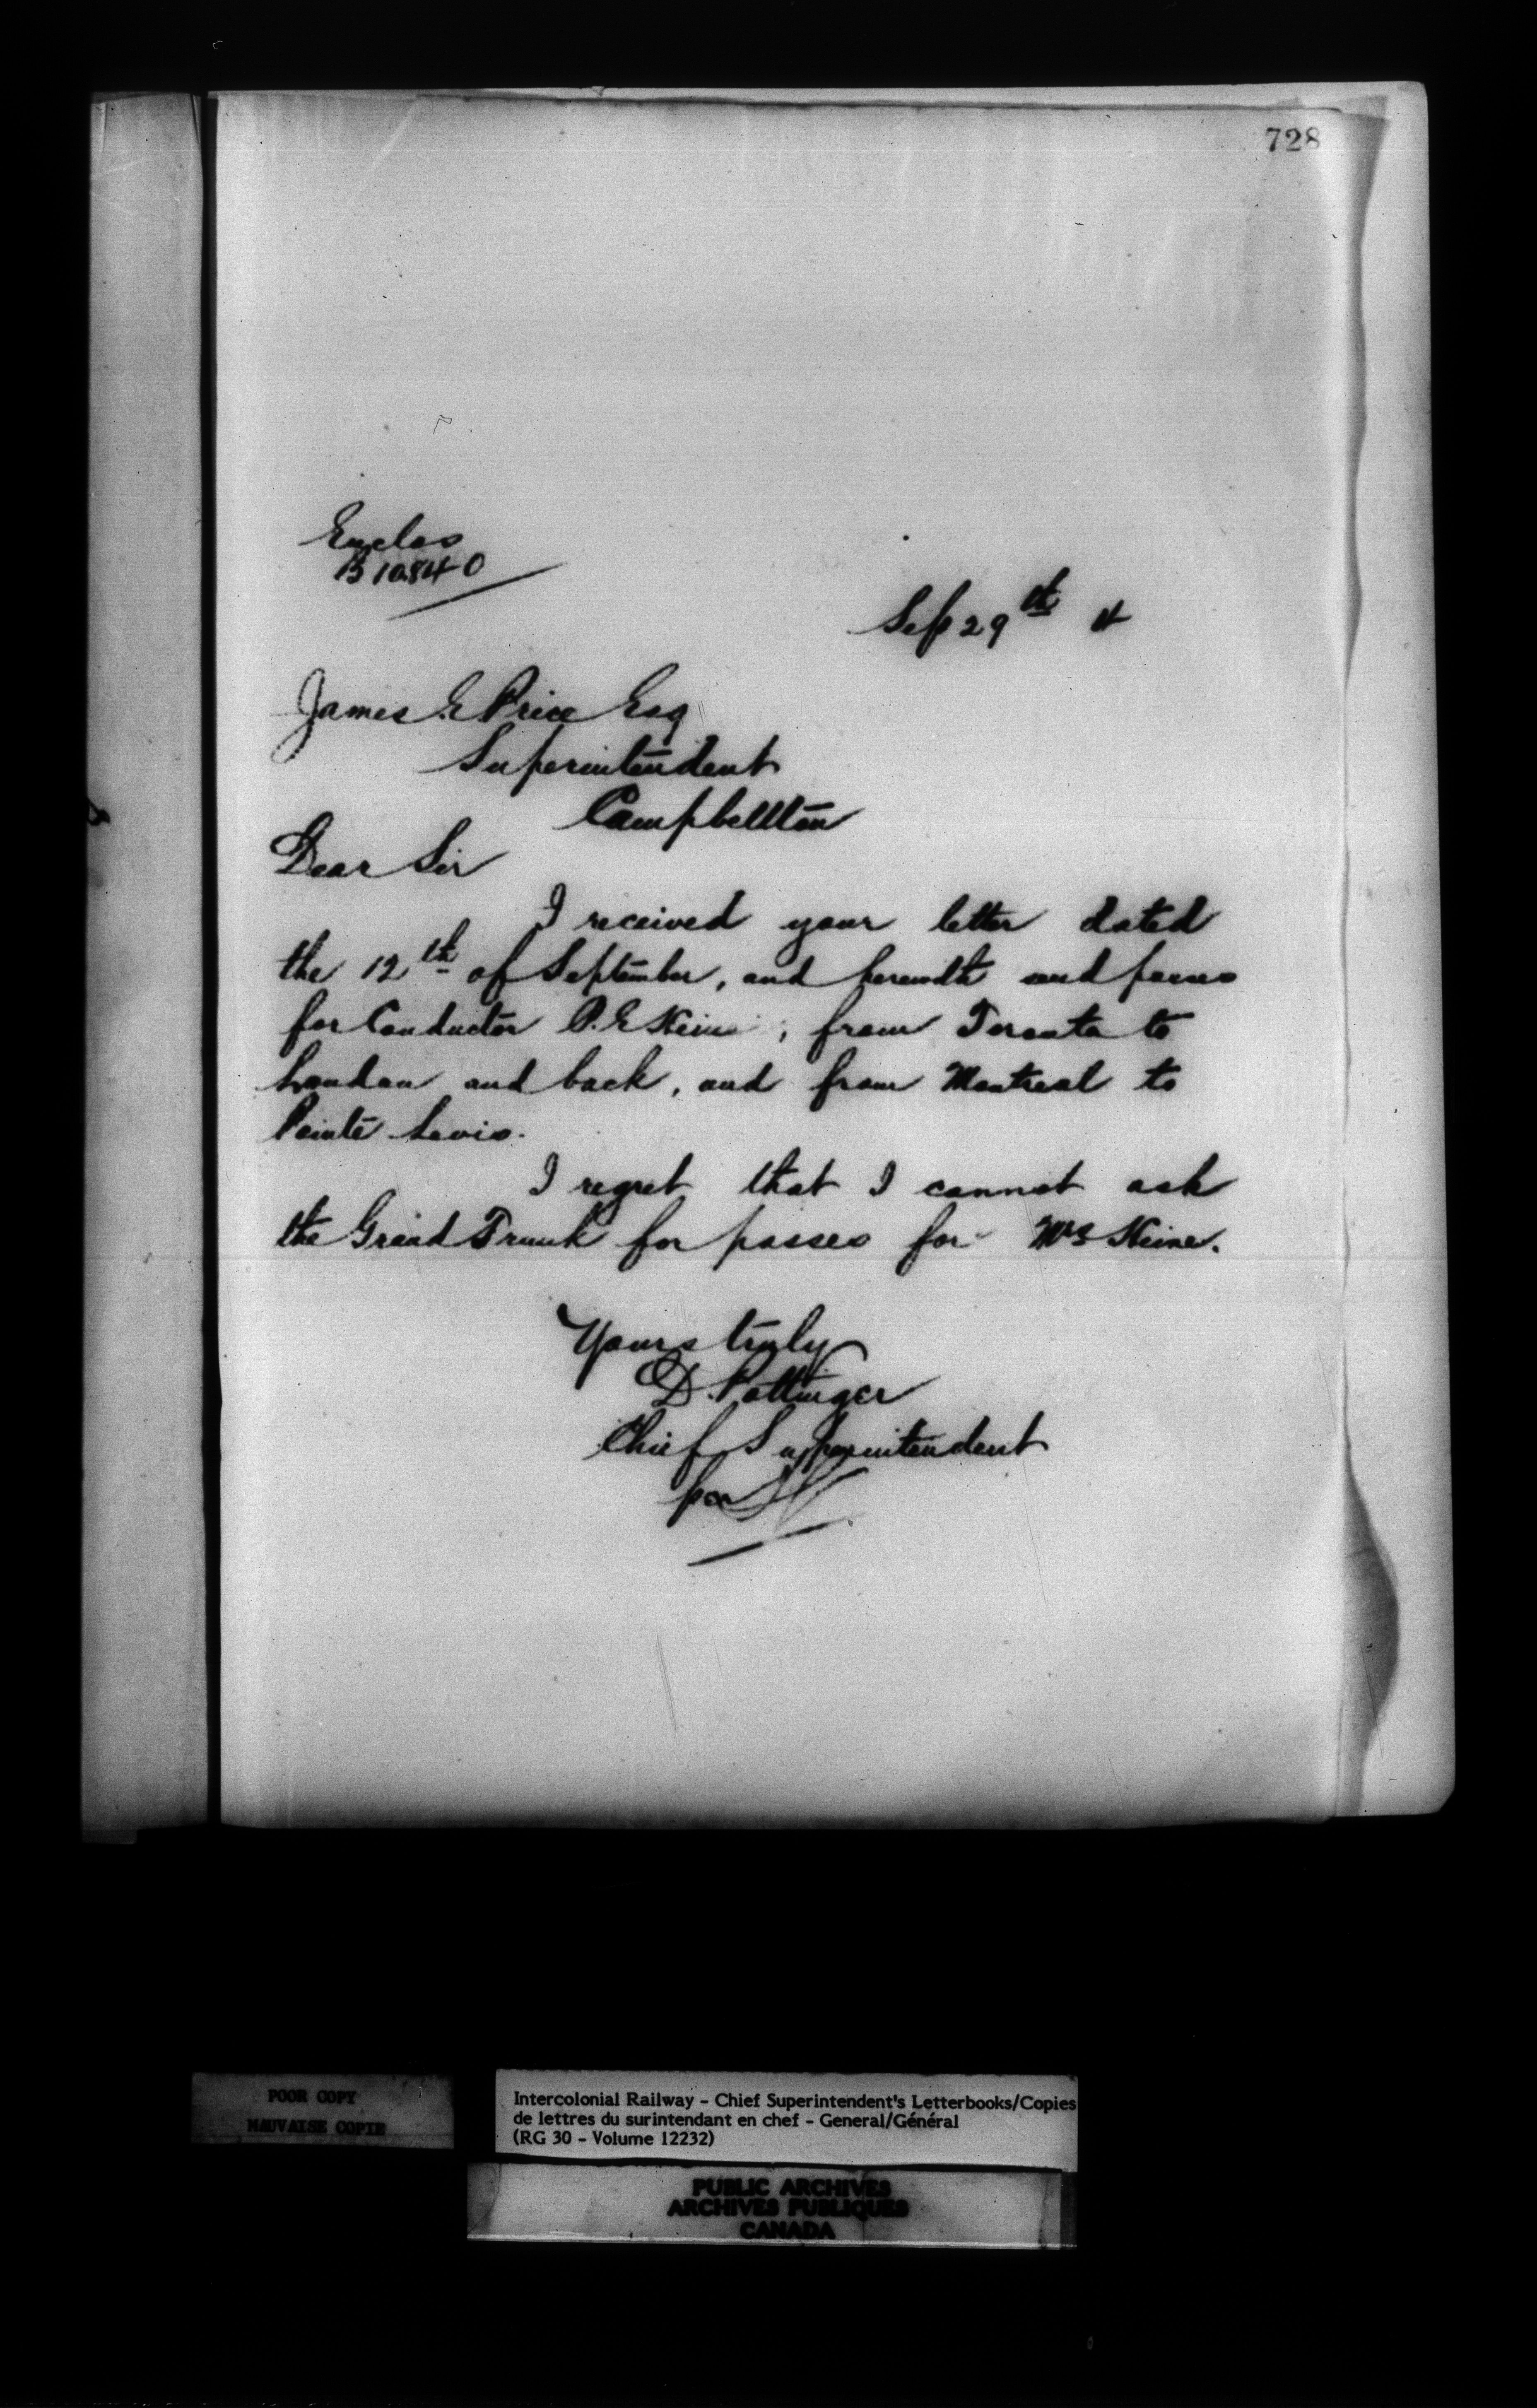 728
Enclos
B 10840
Sep 29th 4
James E Price Esq
Superintendent
Campbellton
Dear Sir
I received your letter dated
the 12th of September, and herewith send passes
for Conductor P. E Heine, from Toronto to
London and back, and from Montreal to
Pointe Levis.
I regret that I cannot ask
the Grand Trunk for passes for Mrs Heine.
Yours truly
D. Pottinger
Chief Superintendent
per
POOR COPY
MAUVAISE COPIE
Intercolonial Railway – Chief Superintendent's Letterbooks/Copies
de lettres du surintendant en chef – General/Général
(RG 30 – Volume 12232)
PUBLIC ARCHIVES
ARCHIVES PUBLIQUES
CANADA